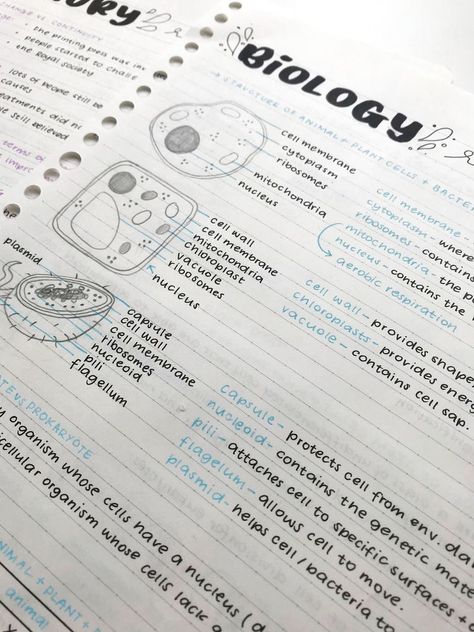 CHANGE VS. CONTINUITY
• the printing press was
• people started to
the Royal Society
lots of people still
causes
still believed
terms of
BIOLOGY
→ STRUCTURE OF ANIMAL + PLANT CELLS +
cell membrane
cytoplasm
ribosomes
mitochondria
nucleus
cell wall
cell membrane
mitochondria
chloroplast
vacuole
ribosomes
nucleus
plasmid
capsule
cell wall
cell membrane
ribosomes
nucleoid
pili
flagellum
cell membrane
cytoplasm - where
ribosomes - contains
mitochondria - the
nucleus - contains the
→ aerobic respiration
cell wall - provides shape
chloroplasts - provides
vacuole - contains cell sap.
capsule - protects cell from env.
nucleoid - contains the genetic
pili - attaches cell to specific surfaces +
flagellum - allows cell to move.
plasmid - helps cell / bacteria to
PROKARYOTE
organism whose cells have a nucleus
organism whose cells lack
+ PLANT +
animal